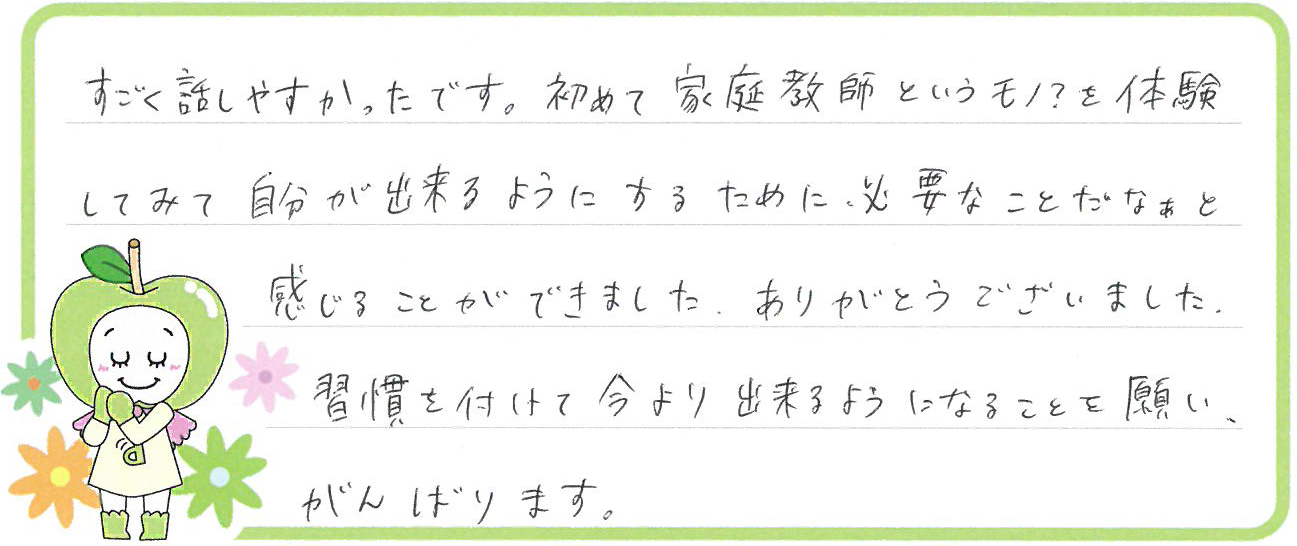 すごく話しやすかったです。初めて家庭教師というモノ?を体験
してみて自分が出来るようにするために、必要なことだなぁと
感じることができました。ありがとうございました。
習慣を付けて今より出来るようになることを願い、
がんばります。